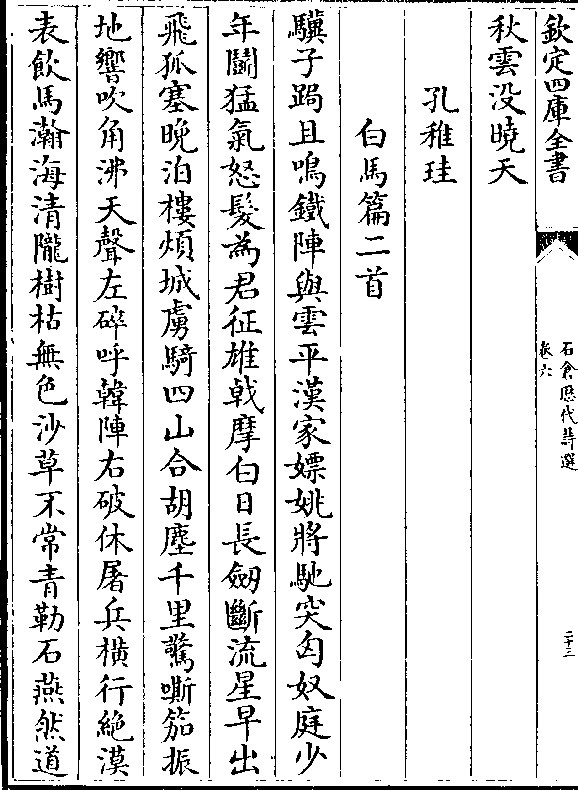 欽定四庫全書
石倉厯代詩選
卷六
二十三
秋雲没曉天
孔稚珪
白馬篇二首
驥子跼且鳴鐵陣與雲平漢家嫖姚將馳突匈奴庭少
年鬭猛氣怒髮為君征雄戟摩白日長劔斷流星早出
飛狐塞晚泊樓煩城虜騎四山合胡塵千里驚嘶笳振
地響吹角沸天聲左碎呼韓陣右破休屠兵橫行絶漠
表飲馬瀚海清隴樹枯無色沙草不常青勒石燕然道